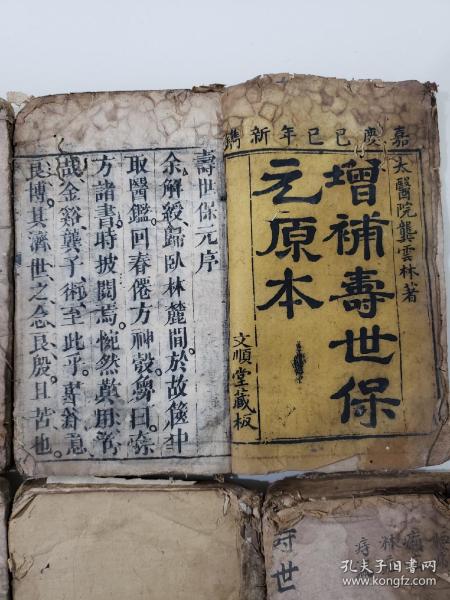 嘉慶己巳年新鐫
太醫院龔雲林著
增補壽世保
元原本
文順堂藏板
壽世保元序
余解綬歸臥林麓間於故篋中
取醫鑑回春
方諸書時披閱焉恍然
哉金谿龔子術至此乎
良博其濟世之念良殷且苦也
壽世
孔夫子旧书网
http://www.kongfz.com